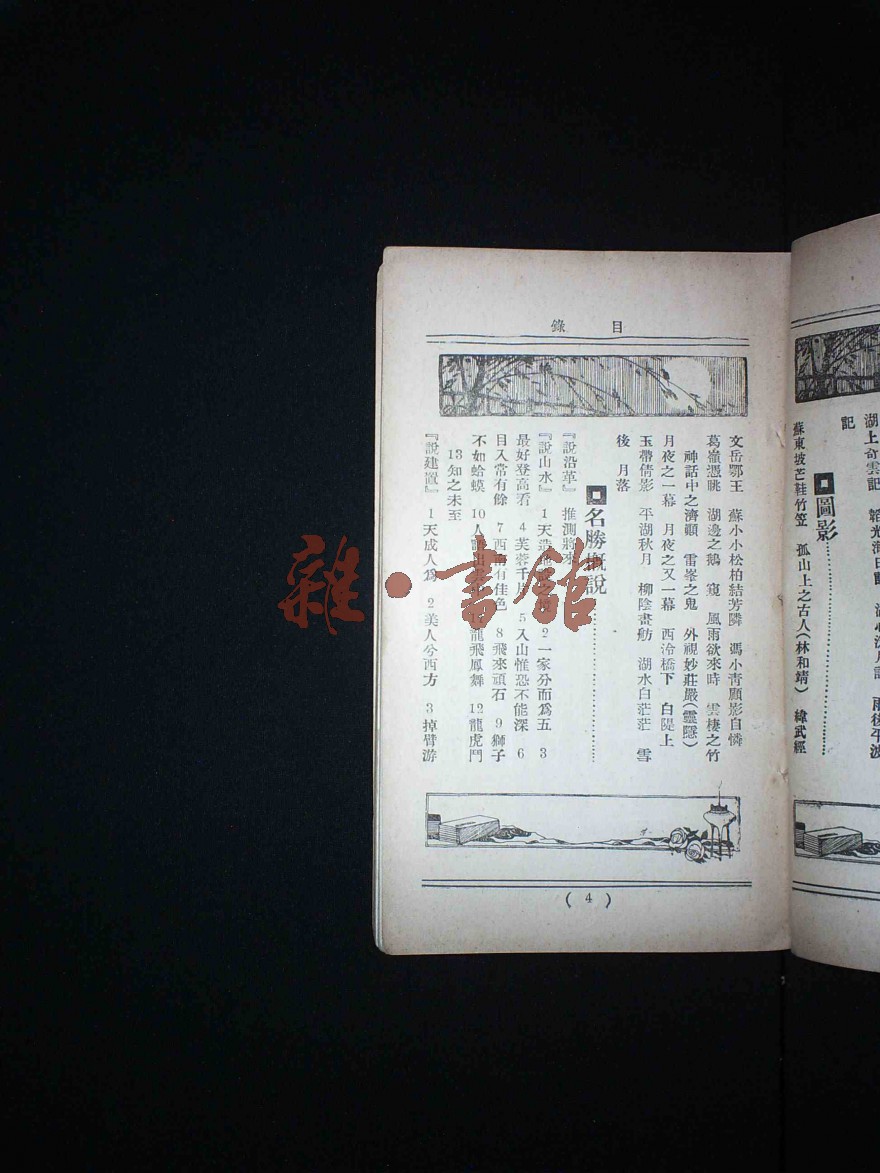 記
圖影
蘇東坡芒鞋竹笠　孤山上之古人(林和靖)　緯武經
目錄
文岳鄂王　蘇小小松柏結芳隣　馮小青顧影自憐
葛嶺憑眺　湖邊之鵝　窺　風雨欲來時　雲棲之竹
神話中之濟顚　雷峯之鬼　外視妙莊嚴(靈隱)
月夜之一幕　月夜之又一幕　西泠橋下　白隄上
玉帶倩影　平湖秋月　柳陰書舫　湖水白茫茫　雪
後　月落
名勝概說
『說沿革』　推測將來
『說山水』　1天造　2一家分而爲五　3
最好登高看　4芙蓉千　5入山惟恐不能深　6
目入常有餘　7西南有佳色　8飛來頑石　9獅子
不如蛤蟆　10人　龍飛鳳舞　12龍虎鬥
13知之未至
『說建置』　1天成人爲　2美人兮西方　3掉臂游
(4)
雜·書館